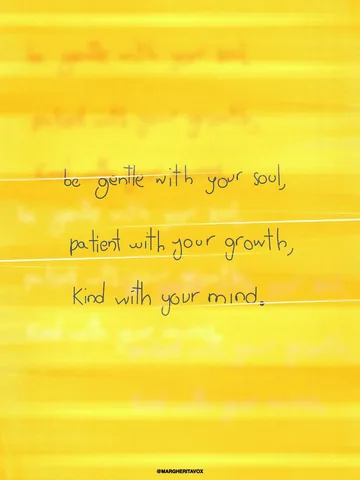 be gentle with your soul,
patient with your growth,
Kind with your mind.
@MARGHERITAVOX